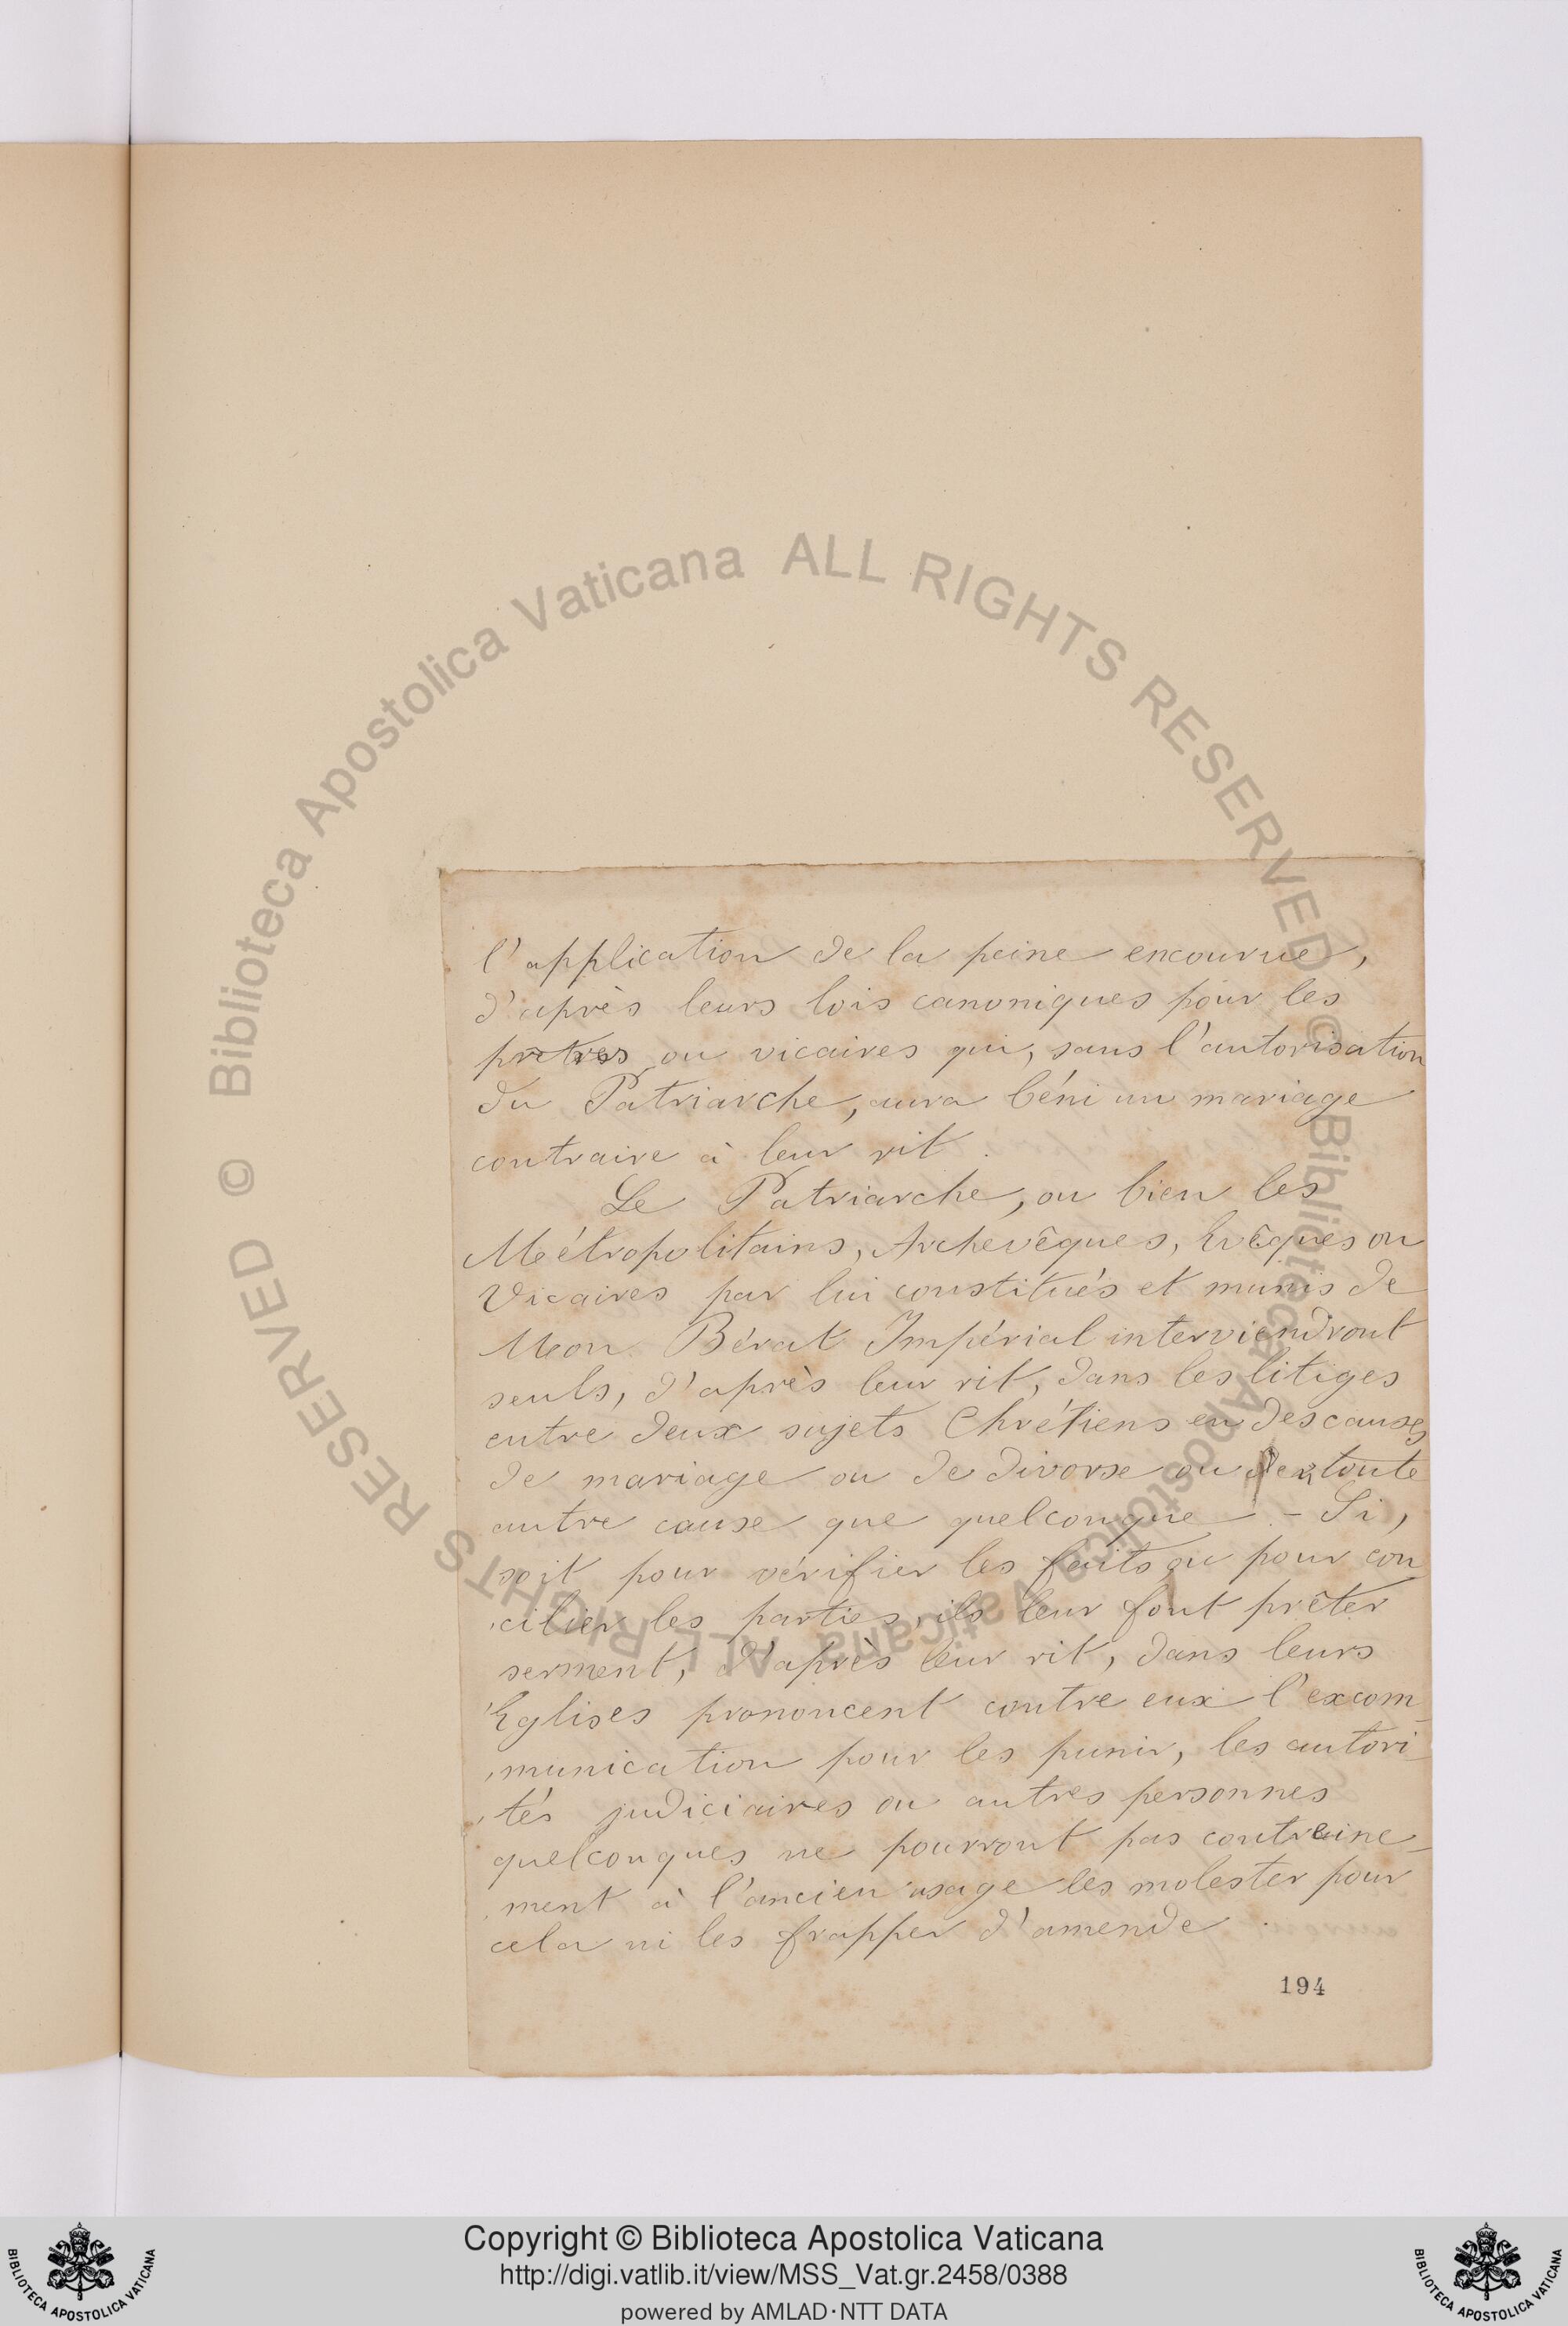 l'application de la peine encourue,
d'après leurs lois canoniques pour les
prêtres ou vicaires qui, sans l'autorisation
du Patriarche, aura béni un mariage
contraire à leur rit.
Le Patriarche, ou bien les
Métropolitains, Archevêques, Evêques ou
Vicaires par lui constitués et munis de
Mon Bérat Impérial interviendront
seuls, d'après leur rit, dans les litiges
entre deux sujets Chrétiens en des causes
de mariage ou de divorse ou toute
autre cause que quelconque. - Si,
soit pour vérifier les faits ou pour con
cilier les parties, ils leur font prêter
serment, d'après leur rit, dans leurs
Eglises prononcent contre eux l'excom-
munication pour les punir, les autori-
tés judiciaires ou autres personnes
quelconques ne pourront pas contraine-
ment à l'ancien usage les molester pour
cela ni les frapper d'amende.
194
© Biblioteca Apostolica Vaticana ALL RIGHTS RESERVED © Biblioteca Apostolica Vaticana ALL RIGHTS RESERVED
Copyright © Biblioteca Apostolica Vaticana
http://digi.vatlib.it/view/MSS_Vat.gr.2458/0388
powered by AMLAD·NTT DATA
BIBLIOTECA APOSTOLICA VATICANA
BIBLIOTECA APOSTOLICA VATICANA